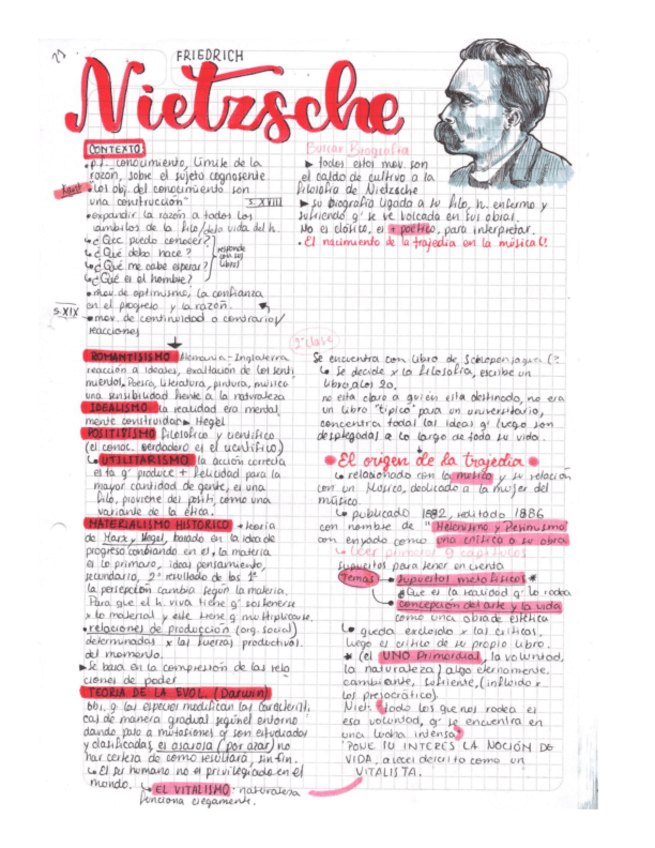 27
FRIEDRICH
Nietzsche
CONTEXTO
conocimiento, límite de la
razón, sobre el sujeto cognosente.
Kant "los obj. del conocimiento son
una construcción" S. XVIII
expandir la razón a todos los
ambitos de la filo/ vida del h.
¿Que puedo conocer?
¿Qué debo hacer?
¿Qué me cabe esperar?
¿Qué es el hombre?
responde con sus libros
mov. de optimismo, la confianza
en el progreso y la razón.
S. XIX mov. de continuidad o contrarios/
reacciones
ROMANTISISMO Alemania-Inglaterra
reacción a ideales, exaltación de los senti
mientos, Poesía, literatura, pintura, música
una sensibilidad frente a la naturaleza
IDEALISMO: la realidad era mental,
mente construida Hegel
POSITIVISMO filosófico y científico
(el conoc. verdadero es el científico)
UTILITARISMO la acción correcta
es la q' produce + felicidad para la
mayor cantidad de gente, es una
filo, proviene del positi, como una
variante de la ética.
MATERIALISMO HISTORICO teoría
de Marx y Hegel, basado en la idea de
progreso cambiando en el, la materia
es lo primario, ideas pensamiento,
secundario, 2° resultado de las 1ª
la persepción cambia según la materia.
Para que el h. viva tiene q' sostenerse
x lo material y este tiene q multiplicarse.
relaciones de producción (org. social)
determinadas x las fuerzas productivas.
del momento.
Se basa en la compresión de las rela
ciones de poder
TEORIA DE LA EVOL. (Darwin)
obs. q las especies modifican las caracteristi
cas de manera gradual según el entorno
dando paso a mutasiones q son estudiadas
y clasificadas, es azarosa (por azar) no
hay certeza de como resultará, sin fin.
El ser humano no es privilegiado en el
mundo.
EL VITALISMO: naturaleza
funciona ciegamente.
Buscar Biografía
todos estos mov. son
el caldo de cultivo a la
filosofía de Nietzsche
su biografía ligada a su filo, h. enfermo y
sufriendo q' se ve volcada en sus obras.
No es clásico, es + poético, para interpretar.
El nacimiento de la trajedia en la música (!
2° clase
Se encuentra con libro de Schopenjagua (?
Se decide x la filosofía, escribe un
libro a los 20.
no esta claro a quién esta destinado, no era
un libro "tipico" para un universitario,
concentra todas las ideas q' luego son
desplegadas a lo largo de toda su vida.
El origen de la trajedia
relacionado con la musica y su relación
con un Músico, dedicado a la mujer del
músico.
publicado 1882, reeditado 1886
con nombre de "Helenismo y Pesimismo"
con ensayo como una crítica a su obra
Leer primeros 9 capitulos
supuestos para tener en cuenta
Temas
supuestos metafísicos *
¿Que es la realidad q' lo rodea
concepción del arte y la vida
como una obra de estética
queda excluido x las criticas,
luego es critico de su propio libro.
* (el UNO Primordial, la voluntad,
la naturaleza) algo eternamente.
cambiante, sufriente, (influido x
los presocrático).
Niet: todo los que nos rodea es
esa voluntad, q' se encuentra en
una lucha intensa"
"PONE SU INTERES LA NOCIÓN DE
VIDA, a veces descrito como un
VITALISTA.